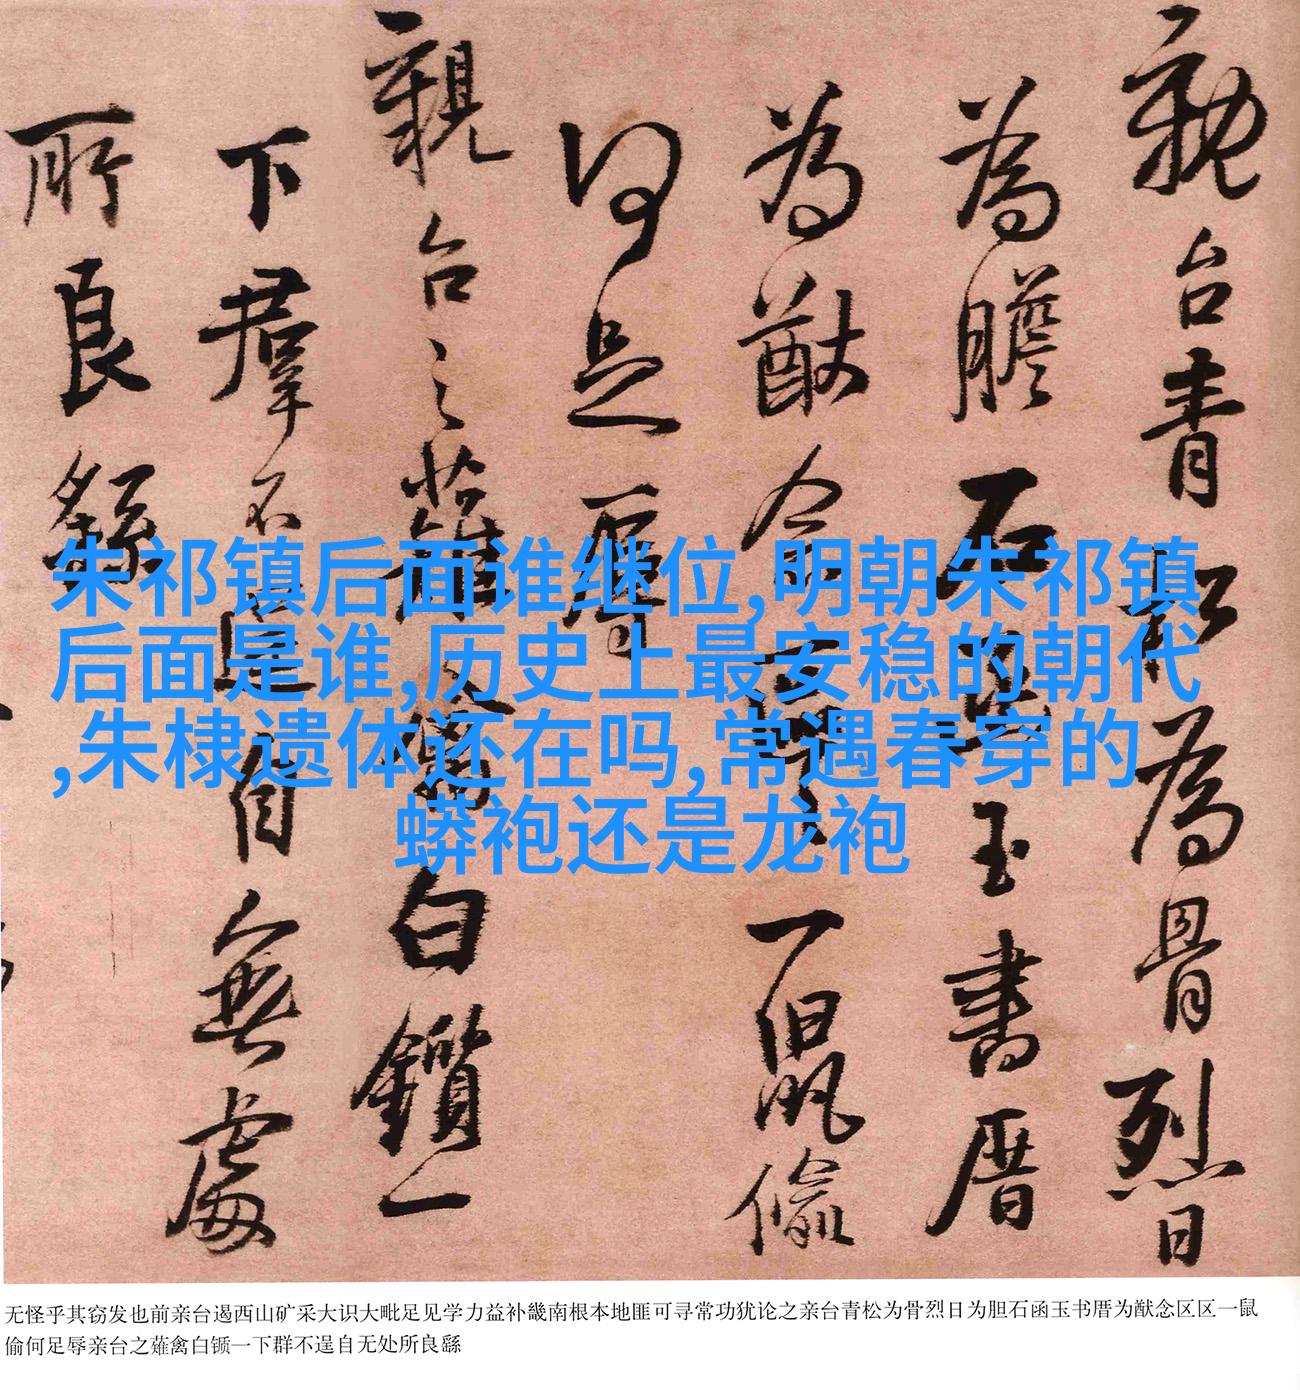 親台青松為骨烈日
為膽石函玉書厝
為猷念區區一鼠偷
何足辱
親台之薙禽白鑕一
下群不逞自無處
所良繇
朱祁镇后面谁继位,明朝朱祁镇
后面是谁,历史上最安稳的朝代
,朱棣遗体还在吗,常遇春穿的
蟒袍还是龙袍
无怪乎其窃发也前亲台遏西山矿采大识大毗足见学力益补畿南根本地匪可寻常功犹论之亲台青松为骨烈日为胆石函玉书厝为猷念区区一鼠
偷何足辱亲台之薙禽白锧一下群不逞自无处所良繇